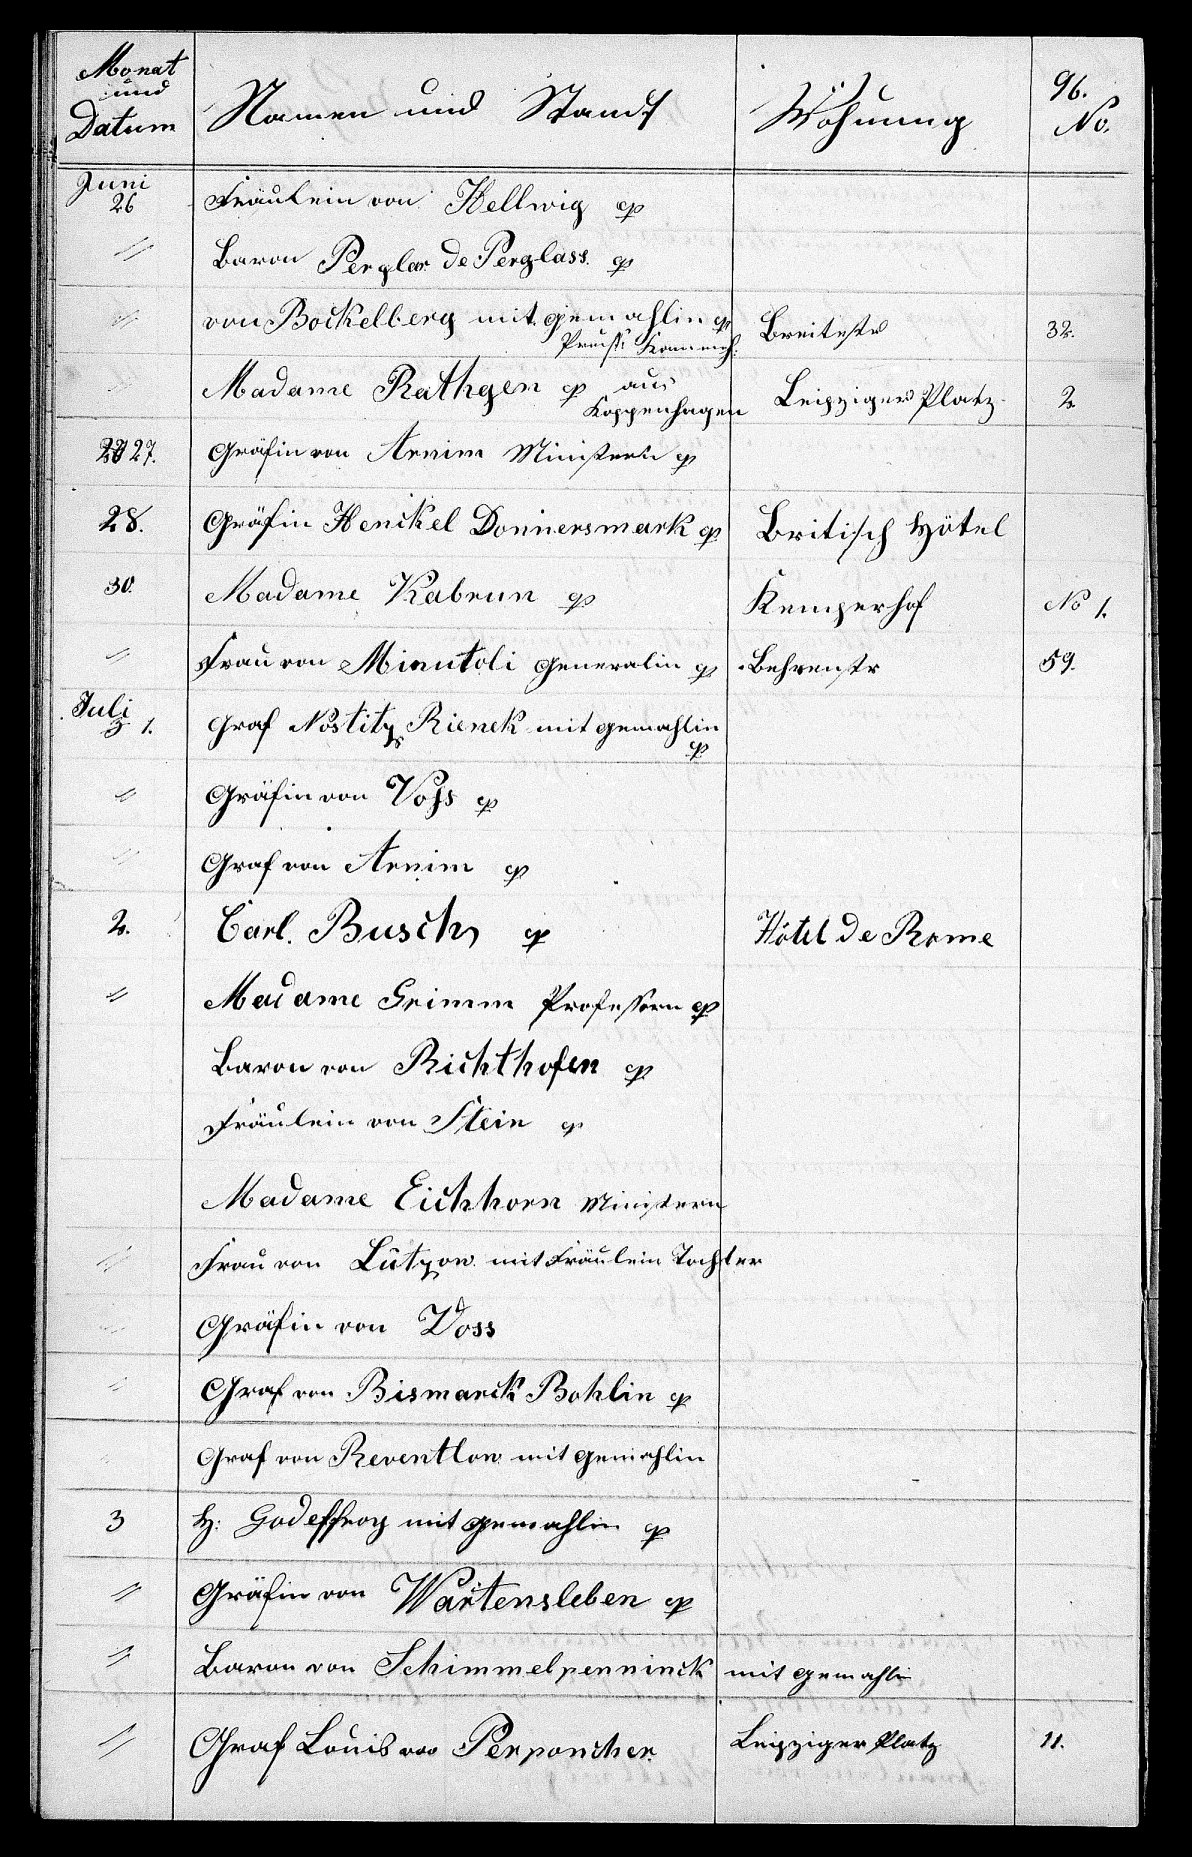 Monat
und
Datum Namen und Stand Wohnung 96.
No.
Juni
26 Fräulein von Hellwig
〃 Baron Perglas de Perglass.
〃 von Bockelberg mit Gemahlin Breitestr 32.
Madame Rathgen aus Leipziger Platz 2
Koppenhagen
27. Gräfin von Arnim Ministerin
28. Gräfin Henckel Donnersmark Britisch Hôtel
30. Madame Kabrun Kemperhof No 1.
〃 Frau von Minutoli Generalin Behrenstr 59.
Juli
1. Graf Nostitz Rienek mit Gemahlin
〃 Gräfin von Voss
〃 Graf von Arnim
2. Carl. Busch Hôtel de Rome
〃 Madame Grimm Professorn
Baron von Richthofen
Fräulein von Stein
Madame Eichhorn Ministern
〃 Frau von Lützow mit Fräulein Tochter
Gräfin von Voss
〃 Graf von Bismarck Bohlin
Graf von Reventlow mit Gemahlin
3 H: Godeffroy mit Gemahlin
〃 Gräfin von Wartensleben
〃 Baron von Schimmelpenninck mit Gemahlin
〃 Graf Louis von Perponcher Leipziger Platz 11.